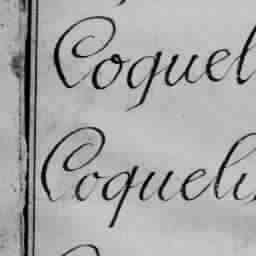 Coquel
Coqueli